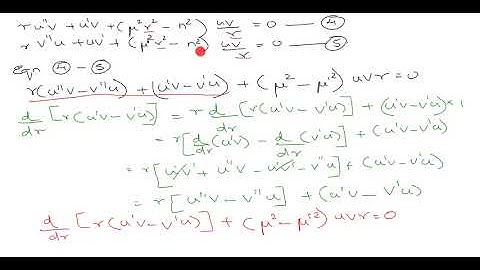 r u''v + u'v + (μ²r² - n²) uv/r = 0 — ④
r v''u + uv' + (μ'²r² - n²) uv/r = 0 — ⑤
Eqn ④ - ⑤
r(u''v - v''u) + (u'v - v'u) + (μ² - μ'²) uvr = 0
d/dr [r(u'v - v'u)] = r d/dr [r(u'v - v'u)] + (u'v - v'u) × 1
= r[d/dr (u'v) - d/dr (v'u)] + (u'v - v'u)
= r[u'v' + u''v - u'v' - v''u] + (u'v - v'u)
= r[u''v - v''u] + (u'v - v'u)
d/dr [r(u'v - v'u)] + (μ² - μ'²) uvr = 0